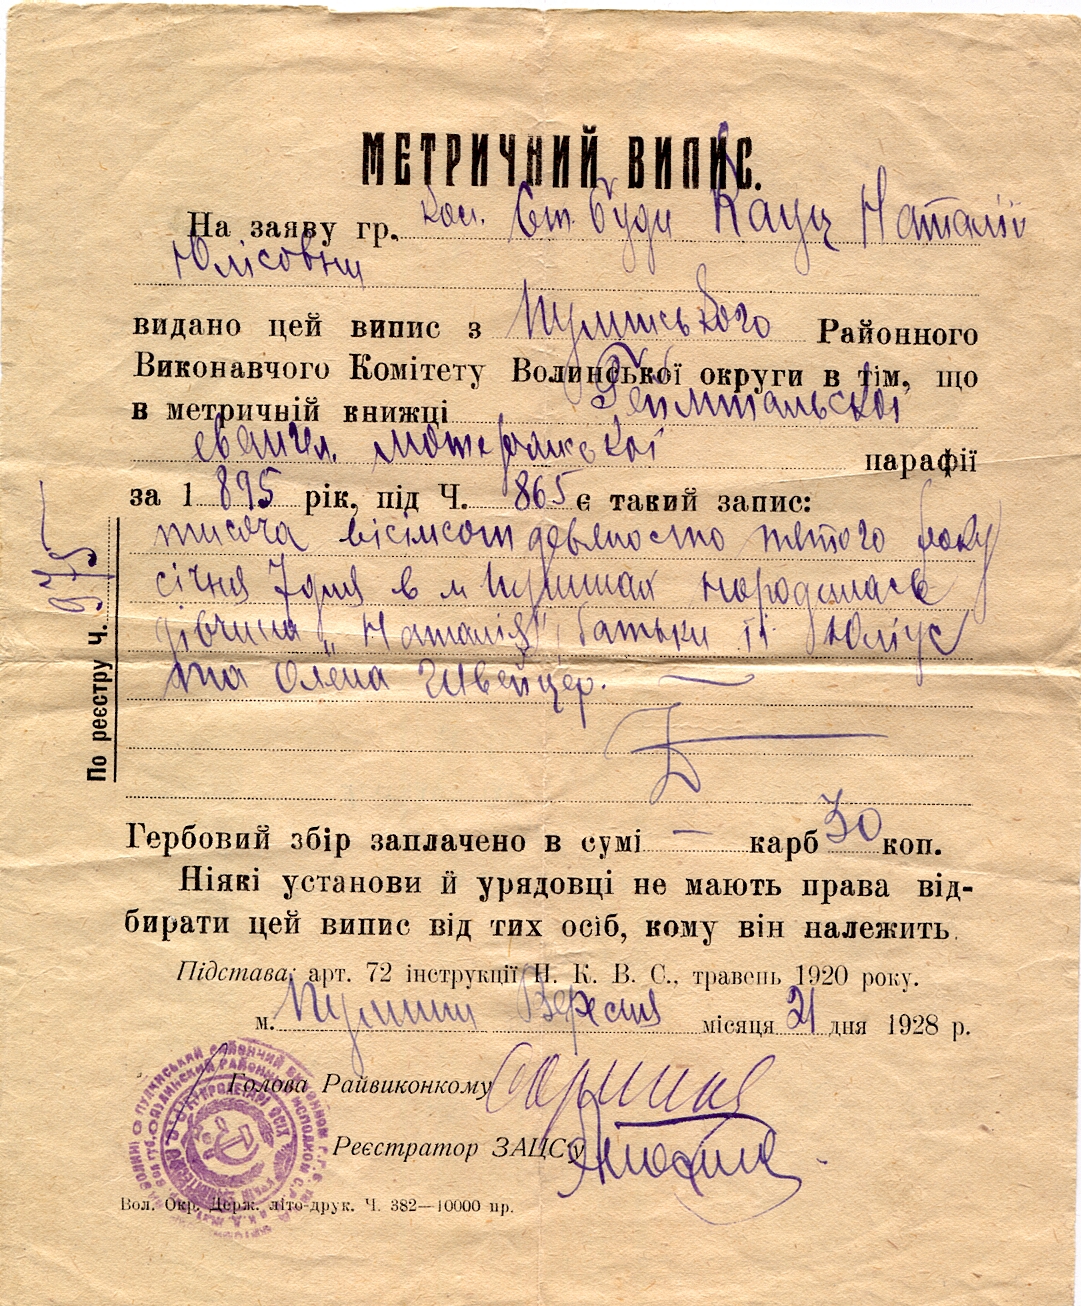 МЕТРИЧНИЙ ВИПИС.
На заяву гр. кол. Ст. Буди Кауц Наталії
Юлісовни
видано цей випис з Пулинського Районного
Виконавчого Комітету Волинської округи в тім, що
в метричній книжці Геймтальської
евангел. лютеранської парафії
за 1895 рік, під Ч. 865 є такий запис:
тисяча вісімсот девяносто пятого року
січня 7 дня в м Пулинах народилась
дівчина „Наталія", батьки її Юліус
та Олена Швейцер.
По реєстру Ч. 975
Гербовий збір заплачено в сумі — карб 30 коп.
Ніякі установи й урядовці не мають права від-
бирати цей випис від тих осіб, кому він належить.
Підстава: арт. 72 інструкції Н. К. В. С., травень 1920 року.
м. Пулини Вересня місяця 21 дня 1928 р.
Голова Райвиконкому
Реєстратор ЗАЦСу
Вол. Окр. Держ. літо-друк. Ч. 382—10000 пр.